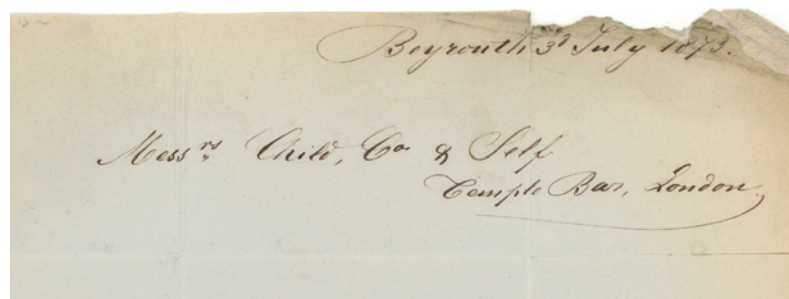 Beyrouth 3d July 1873.
Messrs Child, Co & Self
Temple Bar, London.